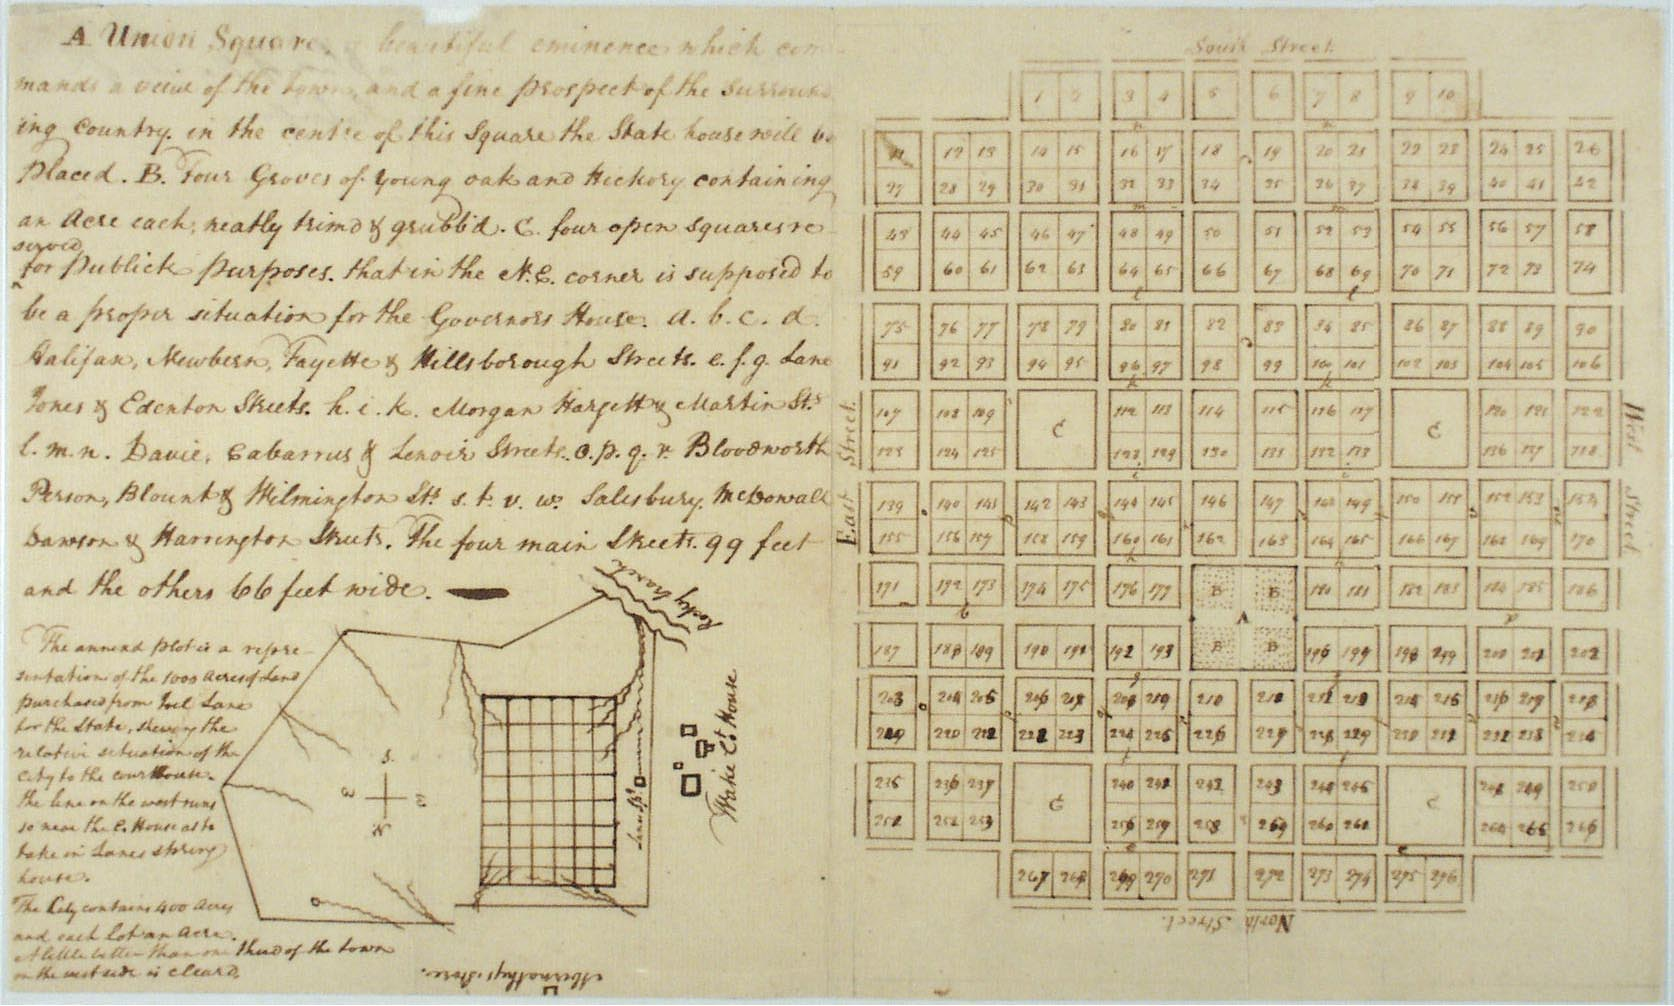 A Union Square, a beautiful eminence which com
mands a veiw of the town, and a fine prospect of the surround
ing country. in the centre of this Square the State house will be
placed. B. Four Groves of young oak and Hickory containing
an Acre each, neatly trimd & grubb'd. C. four open squares re
served
for publick purposes. that in the N.E. corner is supposed to
be a proper situation for the Governors House. a. b. c. d.
Halifax, Newbern, Fayette & Hillsborough Streets. e. f. g. Lane
Jones & Edenton Streets. h. i. k. Morgan Hargett & Martin Sts
l. m. n. Davie, Cabarrus & Lenoir Streets. o. p. q. r. Bloodworth
Person, Blount & Wilmington Sts s. t. v. w. Salisbury. McDowall
Dawson & Harrington Streets. The four main Streets. 99 feet
and the others 66 feet wide.
The annexd plot is a repre-
sentation of the 1000 acres of Land
purchased from Joel Lane
for the State, shewing the
relative situation of the
City to the court house.
the line on the west runs
so near the C. House as to
take in Lanes spring
house.
The City contains 400 acres
and each lot an acre.
A little better than one third of the town
on the west side is cleard.
Rocky branch
S.
E
W
N
Lanes Sp.
Wake Ct. House
Abernathys store.
South Street.
East Street.
West Street
North Street.
1 2 3 4 5 6 7 8 9 10
11 12 13 14 15 16 17 18 19 20 21 22 23 24 25 26
27 28 29 30 31 32 33 34 35 36 37 38 39 40 41 42
43 44 45 46 47 48 49 50 51 52 53 54 55 56 57 58
59 60 61 62 63 64 65 66 67 68 69 70 71 72 73 74
75 76 77 78 79 80 81 82 83 84 85 86 87 88 89 90
91 92 93 94 95 96 97 98 99 100 101 102 103 104 105 106
107 108 109 C 112 113 114 115 116 117 C 120 121 122
123 124 125 128 129 130 131 132 133 136 137 138
139 140 141 142 143 144 145 146 147 148 149 150 151 152 153 154
155 156 157 158 159 160 161 162 163 164 165 166 167 168 169 170
171 172 173 174 175 176 177 B B 180 181 182 183 184 185 186
A
187 188 189 190 191 192 193 B B 196 197 198 199 200 201 202
203 204 205 206 207 208 209 210 211 212 213 214 215 216 217 218
219 220 221 222 223 224 225 226 227 228 229 230 231 232 233 234
235 236 237 C 240 241 242 243 244 245 C 248 249 250
251 252 253 256 257 258 259 260 261 264 265 266
267 268 269 270 271 272 273 274 275 276